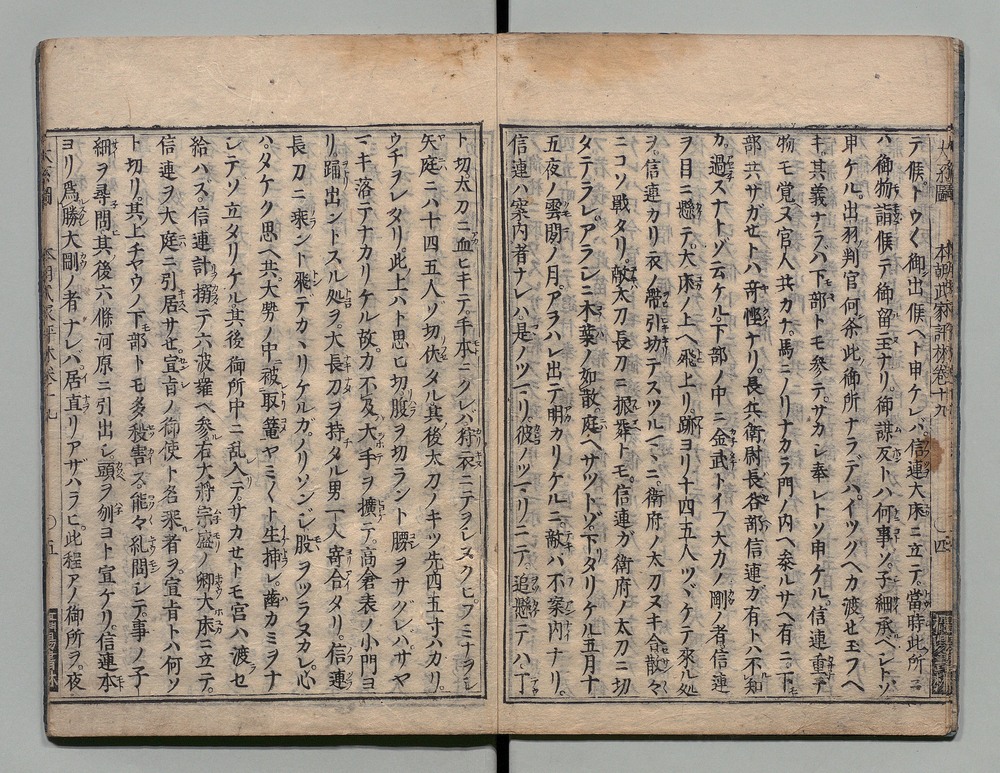 デ候。トウ〱御出候ヘト申ケレバ、信連大床ニ立テ、當時此所ニ
ハ御物詣候デ御留主ナリ。御謀反トハ何事ゾ。子細承ベシトソ
申ケル。出羽判官何条此御所ナラデハ、イツクヘカ渡セ玉フヘ
キ。其義ナラバ下部トモ參テ、サカし奉レトソ申ケル。信連重テ
物モ覚ヌ官人共カナ。馬ニノリナカラ門ノ内ヘ参ルサヘ有ニ、下
部共サガせトハ奇恠ナリ。長兵衛尉長谷部信連ガ有トハ不知
カ。過スナトゾ云ケル。下部ノ中ニ金武トイフ大力ノ剛ノ者信連
ヲ目ニ懸テ、大床ノ上ヘ飛上リ。跡ヨリ十四五人ツヾケテ來ル処
ヲ、信連カリ衣ノ帶引切テスツルマヽニ、衛府ノ太刀ヌキ合散々
ニコソ戦タリ。敵太刀長刀ニ振舞トモ、信連ガ衛府ノ太刀ニ切
タテラレ、アラレニ木葉ノ如散、庭ヘサツトゾ下タリケル。五月十
五夜ノ雲間ノ月、アラハレ出テ明カリケルニ、敵ハ不案内ナリ。
信連ハ案内者ナレハ、是ノツマリ、彼ノツマリニテ、追懸テハ丁
ト切。太刀ニ血ヒキテ、手本ニ
矢庭ニハ十四五人ソ切伏タル。其後太刀ノキツ先四五寸ハカリ。
ウチヲレタリ。此上ハト思ヒ切、腹ヲ切ラント腰ヲサグレハ、サヤ
マキ落テナカリケル故、カ不及、大手ヲ擴テ、高倉表ノ小門ヨ
リ踊出ントスル処ヲ、大長刀ヲ持タル男一人寄合タリ。信連
長刀ニ乘ント飛テカヽリケルガ、ノリソンジ股ヲツラヌカレ、心
ハタケク思ヘ共、大勢ノ中ニ被取篭、ヤミ〱ト生捕レ、歯カミヲナ
シテソ立タリケル。其後御所中ニ乱入テ、サカせトモ宮ハ渡セ
給ハズ。信連計搦テ六波羅ヘ参。右大將宗盛ノ卿大床ニ立テ、
信連ヲ大庭ニ引居サせ、宣旨ノ御使ト名乘者ヲ、宣旨トハ何ソ
ト切リ。其上チヤウノ下部トモ多殺害ス。能々糺問シテ、事ノ子
細ヲ尋問、其後六條河原ニ引出し、頭ヲ刎ヨト宣ケリ。信連本
ヨリ爲勝大剛ノ者ナレバ、居直リアザハラヒ、此程アノ御所ヲ、夜
本朝武家評林巻十九
四
五